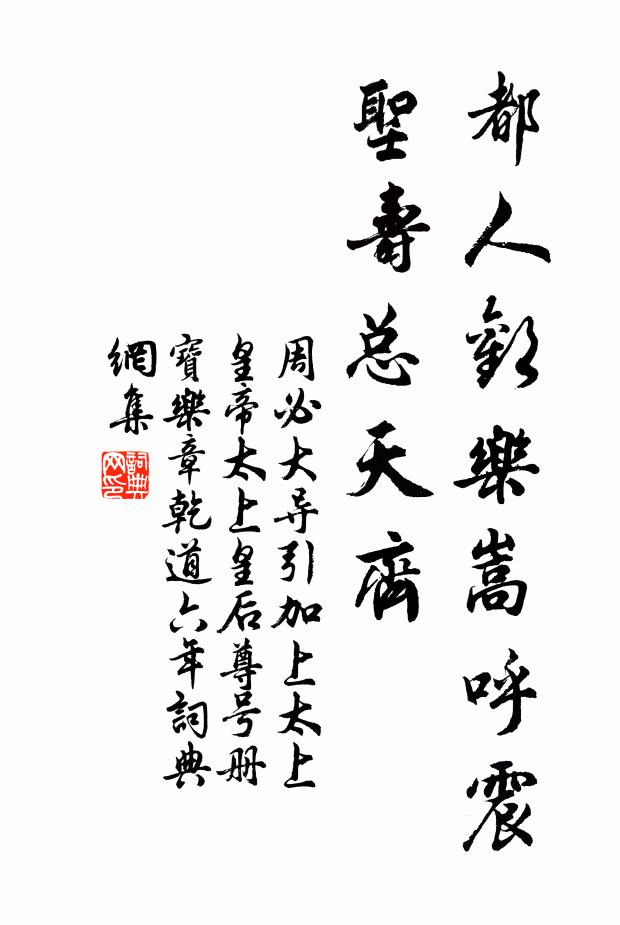 都人歡樂嵩呼震
聖壽总天齊
周必大导引加上太上
皇帝太上皇后尊号册
寶樂章乾道六年詞典
網集
詞典
网印